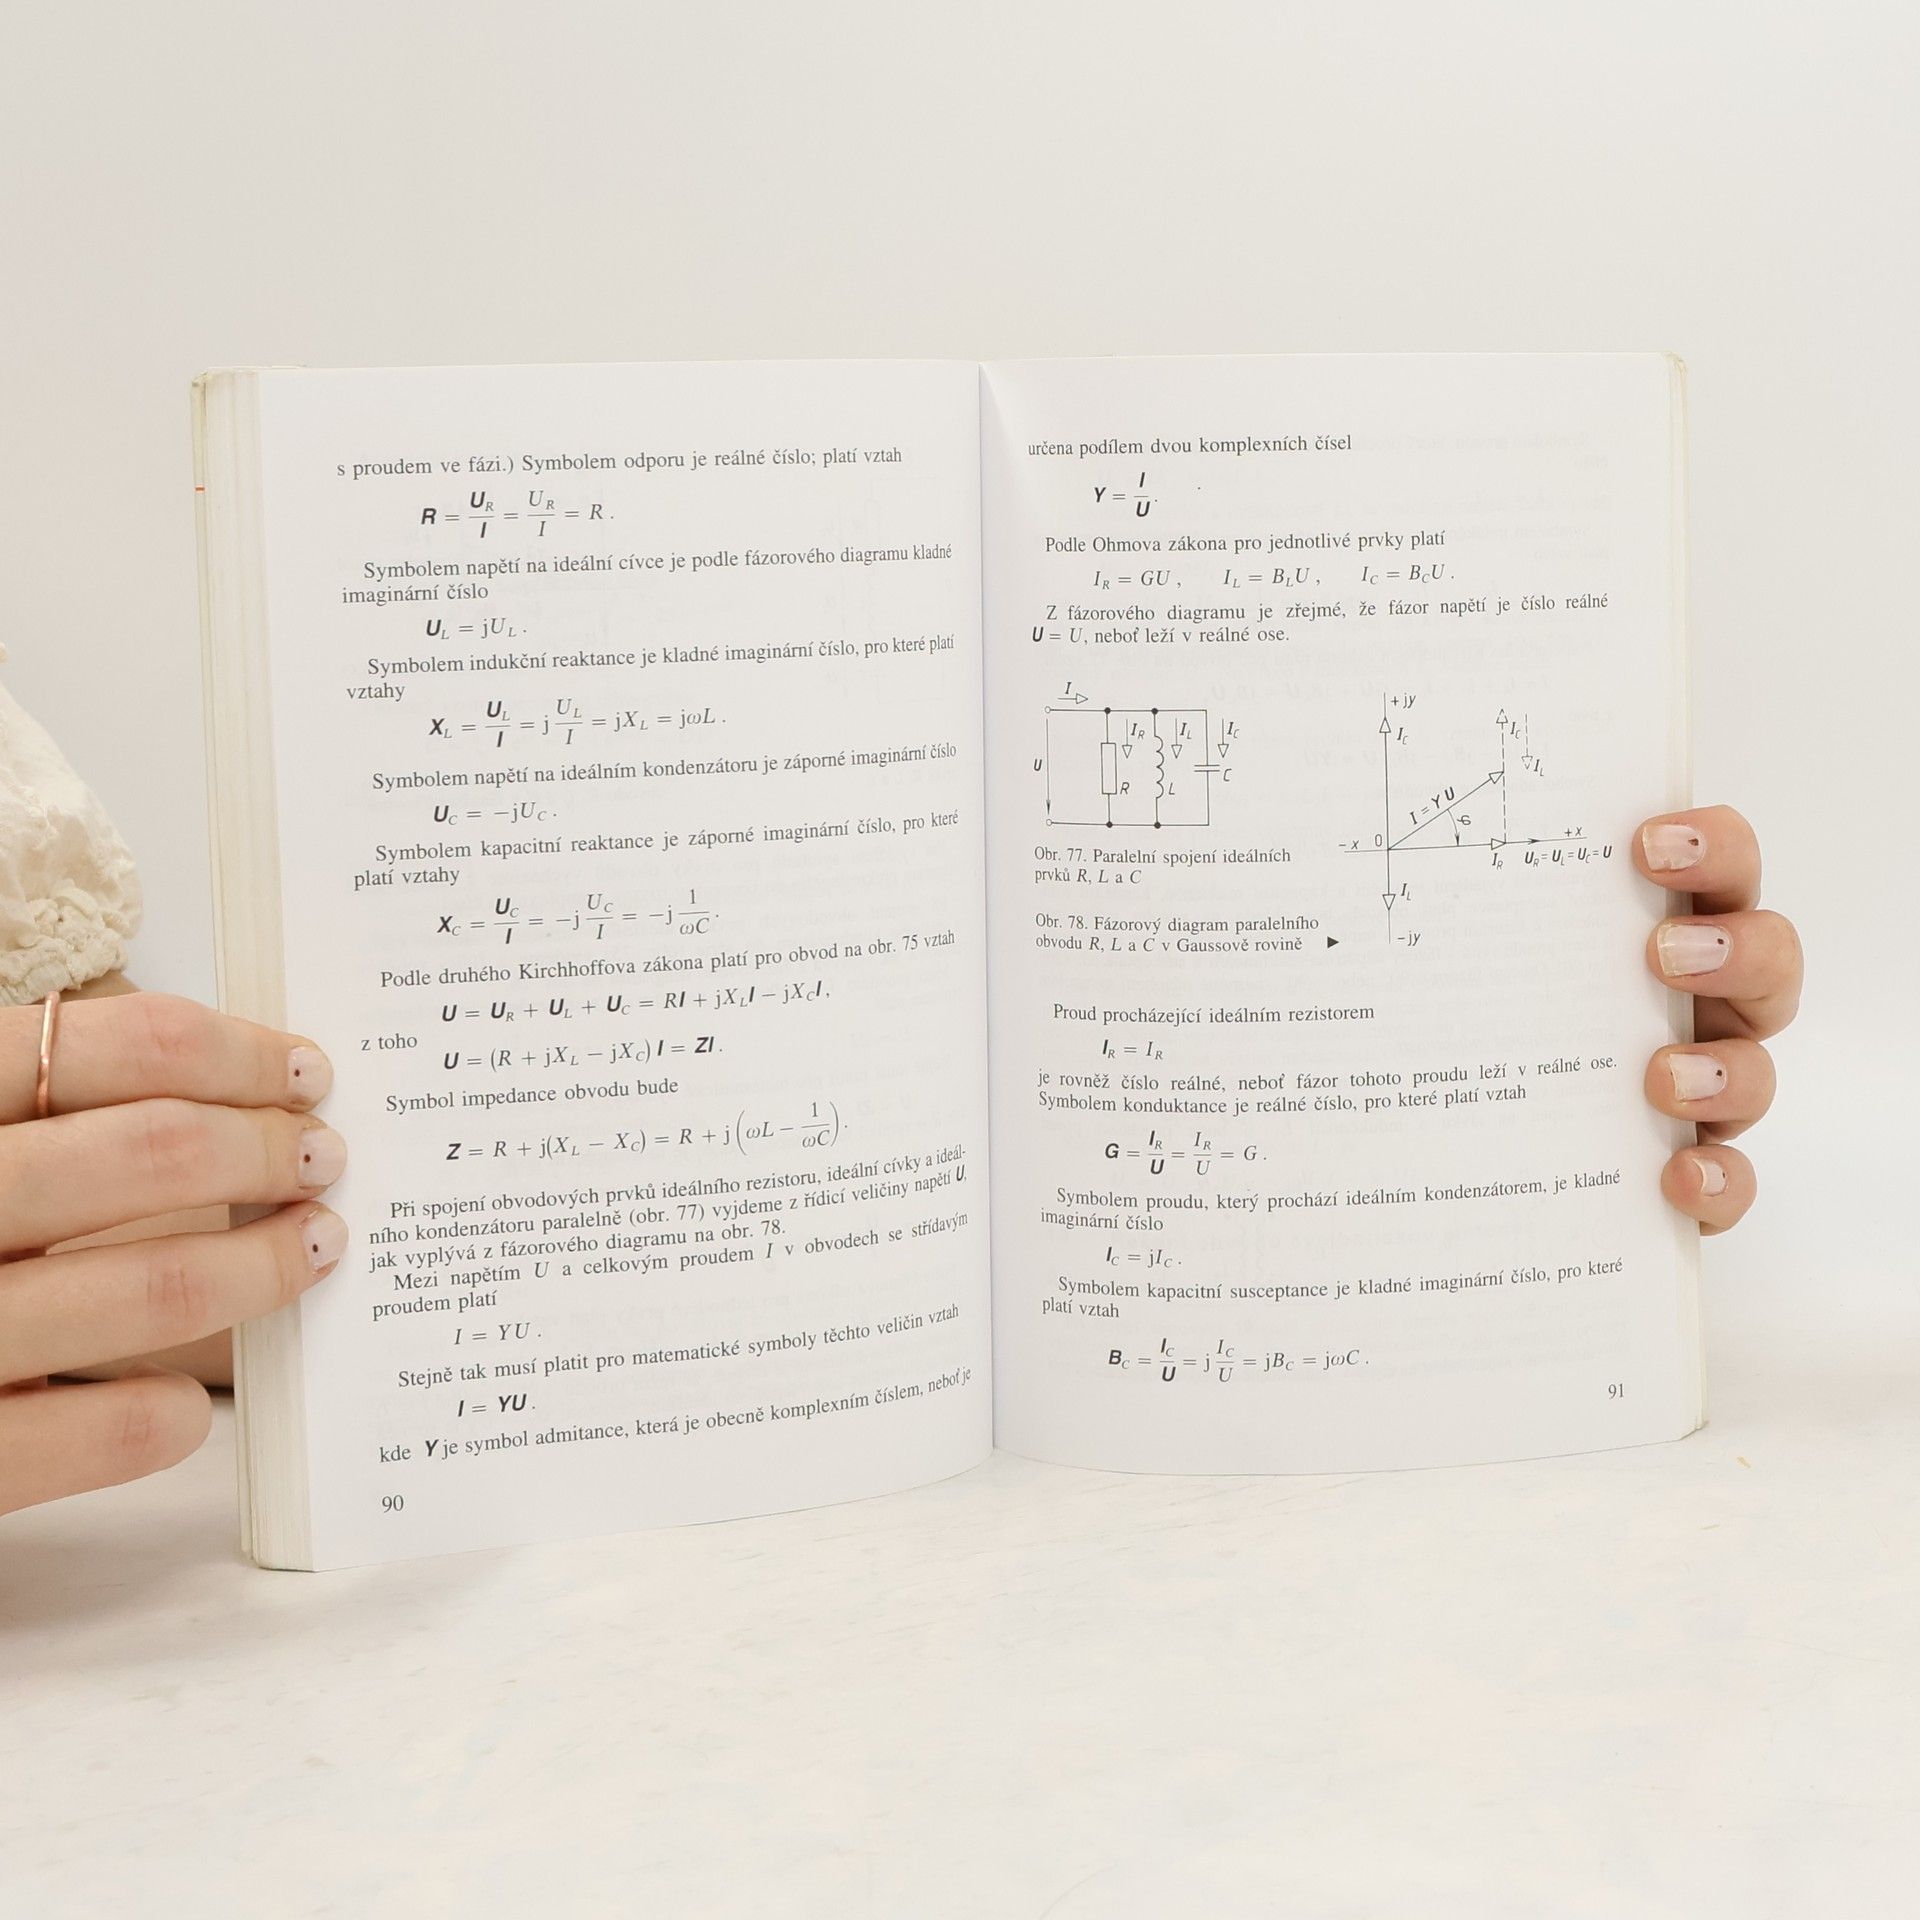 s proudem ve fázi.) Symbolem odporu je reálné číslo; platí vztah
R = U_R / I = U_R / I = R .
Symbolem napětí na ideální cívce je podle fázorového diagramu kladné
imaginární číslo
U_L = jU_L .
Symbolem indukční reaktance je kladné imaginární číslo, pro které platí
vztahy
X_L = U_L / I = j U_L / I = jX_L = jωL .
Symbolem napětí na ideálním kondenzátoru je záporné imaginární číslo
U_C = −jU_C .
Symbolem kapacitní reaktance je záporné imaginární číslo, pro které
platí vztahy
X_C = U_C / I = −j U_C / I = −j 1 / ωC .
Podle druhého Kirchhoffova zákona platí pro obvod na obr. 75 vztah
U = U_R + U_L + U_C = RI + jX_L I − jX_C I ,
z toho
U = (R + jX_L − jX_C) I = ZI .
Symbol impedance obvodu bude
Z = R + j(X_L − X_C) = R + j (ωL − 1 / ωC) .
Při spojení obvodových prvků ideálního rezistoru, ideální cívky a ideál-
ního kondenzátoru paralelně (obr. 77) vyjdeme z řídicí veličiny napětí U,
jak vyplývá z fázorového diagramu na obr. 78.
Mezi napětím U a celkovým proudem I v obvodech se střídavým
proudem platí
I = YU .
Stejně tak musí platit pro matematické symboly těchto veličin vztah
I = YU .
kde Y je symbol admitance, která je obecně komplexním číslem, neboť je
90
určena podílem dvou komplexních čísel
Y = I / U .
Podle Ohmova zákona pro jednotlivé prvky platí
I_R = GU , I_L = B_L U , I_C = B_C U .
Z fázorového diagramu je zřejmé, že fázor napětí je číslo reálné
U = U, neboť leží v reálné ose.
I
U
I_R I_L I_C
R L C
Obr. 77. Paralelní spojení ideálních
prvků R, L a C
Obr. 78. Fázorový diagram paralelního
obvodu R, L a C v Gaussově rovině ►
+ jy
I_C
I_C
I_L
I = Y U
φ
− x 0
+ x
I_R U_R = U_L = U_C = U
I_L
− jy
Proud procházející ideálním rezistorem
I_R = I_R
je rovněž číslo reálné, neboť fázor tohoto proudu leží v reálné ose.
Symbolem konduktance je reálné číslo, pro které platí vztah
G = I_R / U = I_R / U = G .
Symbolem proudu, který prochází ideálním kondenzátorem, je kladné
imaginární číslo
I_C = jI_C .
Symbolem kapacitní susceptance je kladné imaginární číslo, pro které
platí vztah
B_C = I_C / U = j I_C / U = jB_C = jωC .
91